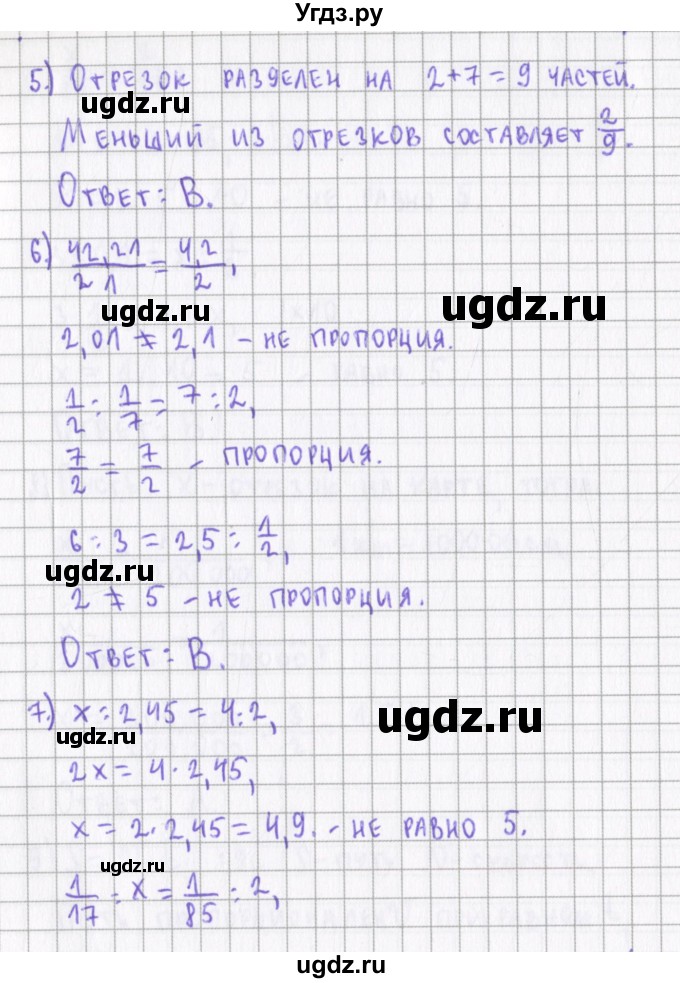 Угдз.ру
5.) Отрезок разделен на 2+7=9 частей.
угдз.ru
Меньший из отрезков составляет 2/9.
Ответ: В.
6.) 42,21/21 = 4,2/2,
ugdz.ru
ugdz.ru
2,01 ≠ 2,1 - не пропорция.
1/2 : 1/7 = 7 : 2,
7/2 = 7/2 - пропорция.
6 : 3 = 2,5 : 1/2,
ugdz.ru
2 ≠ 5 - не пропорция.
Ответ: В.
7.) x : 2,45 = 4 : 2,
ugdz.ru
ugdz.ru
2x = 4 · 2,45,
x = 2 · 2,45 = 4,9. - не равно 5.
ugdz.ru
1/17 : x = 1/85 : 2,
ugdz.ru